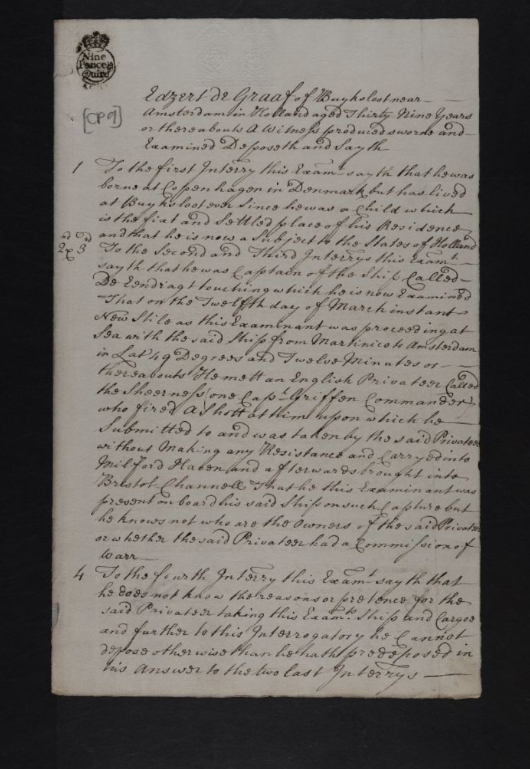 Nine
Pence p
Quire
[CP 9]
Edzert de Graaf of Buyksloot near
Amsterdam in Holland aged Thirty Nine Years
or thereabouts A Witness produced sworne and
Examined Deposeth and Sayth
1 To the first Interry this Exam.t sayth that he was
borne at Copenhagen in Denmark but has lived
at Buyksloot ever Since he was a Child which
is the and Settled place of his Residence
and that he is now a Subject to the States of Holland
2d & 3d To the Second and Third Interrys this Exam.t
sayth that he was Captain of the Ship Called
De Eendragt touching which he is now Examined
That on the Twelfth day of March instant
New Stile as this Examinant was proceeding at
Sea with the said Ship from Martinico to Amsterdam
in Lat.d 49 Degrees and Twelve Minutes or
thereabouts He mett an English Privateer Called
the Sheerness one Cap.t Griffen Commander
who fired A Shott at him upon which he
Submitted to and was taken by the said Privateer
without Making any Resistance and Carryed into
Milford Haven and afterwards brought into
Bristol Channell That he this Examinant was
present on board his said Ship on such Capture but
he knows not who are the Owners of the said Privateer
or whether the said Privateer had a Commission of
Warr
4 To the fourth Interry this Exam.t sayth that
he does not know the reasons or pretence for the
said Privateer taking this Exam.ts Ship and Cargoe
and further to this Interrogatory he Cannot
depose otherwise than he hath predeposed in
his Answer to the two last Interrys